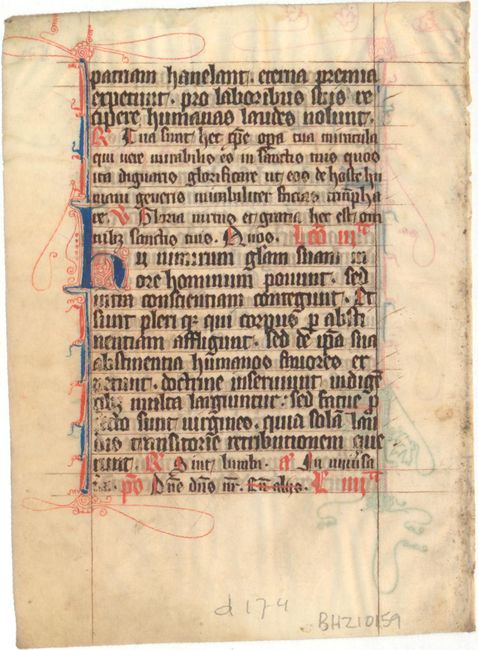 patriam hanelant. eterna premia
expetunt. pro laboribus suis re
cipere humanas laudes nolunt.
R Tua sunt hec xpe opa tua miracula
qui vere mirabilis es in sanctis tuis quos
ita dignaris glorificare ut eos de hoste hu
mani generis mirabiliter facias triumpha
re. V Gloria virtus et gratia hec est om
nibz sanctis tuis. Quos. Lco iii
Hii nimirum gliam suam in
ore hominum ponunt. sed
intra conscientiam contegunt. Et
sunt pleri qz qui corpus p absti
nentiam affligunt. sed de ipa sua
abstinentia humanos favores ex
petunt. doctrine inserviunt indige
tibz multa largiuntur. sed fatue p
fecto sunt virgines. quia solam lau
dis transitorie retributionem que
runt. R Sint lumbi. In
Dne dns nr. Cu aliis. L iiii
d 17-4
BHZ10159